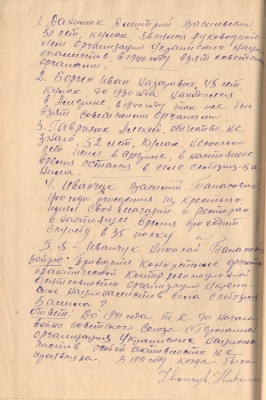 1. Данилюк Дмитрий Васильевич
50 лет, кулак, являлся руководите
лем организации Украинских Нацио
налистов в 1940 году взят советски
органами.
2. Борсен Иван Назарович, 48 лет,
кулак, до 1930 года находился
в , в 1940 году так же был
взят советскими органами.
3. Гаврилюк Алексей, отчество не
знаю 52 лет, кулак, несколько
лет в , в настоящее
время остался в селе Слобода-Ба
4. Иванчук Василий Тапасович,
года рождения, из крестьян
имел свой магазин и ресторан
в настоящее время проходит
службу в 35 полку
5. Я - Иванчук Николай Тапасов
Вопрос: Приведите конкретные факты
практической контрреволюционной
деятельности организации Украин
ских Националистов села Слобода
Банила?
Ответ: До 1941 года т.е. до начала
войны советского союза с Германией
организация Украинских Национа
листов особой активности не
проявляла. В 1941 году когда была
Иванчук Николай